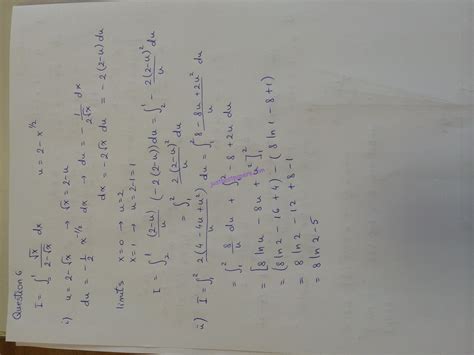 Question 6
I = ∫₀¹ √x / (2-√x) dx u = 2 - x^(1/2)
i) u = 2-√x → √x = 2-u
du = -1/2 x^(-1/2) dx → du = -1/(2√x) dx
dx = -2√x du = -2(2-u) du
limits x=0 → u=2
x=1 → u=2-1=1
I = ∫₂¹ (2-u)/u (-2(2-u)) du = ∫₂¹ -2(2-u)²/u du
= ∫₁² 2(2-u)²/u du
ii) I = ∫₁² 2(4-4u+u²)/u du = ∫₁² (8-8u+2u²)/u du
= ∫₁² 8/u du + ∫₁² -8+2u du
= [8 ln u - 8u + u²]₁²
= (8 ln 2 - 16 + 4) - (8 ln 1 - 8 + 1)
= 8 ln 2 - 12 + 8 - 1
= 8 ln 2 - 5